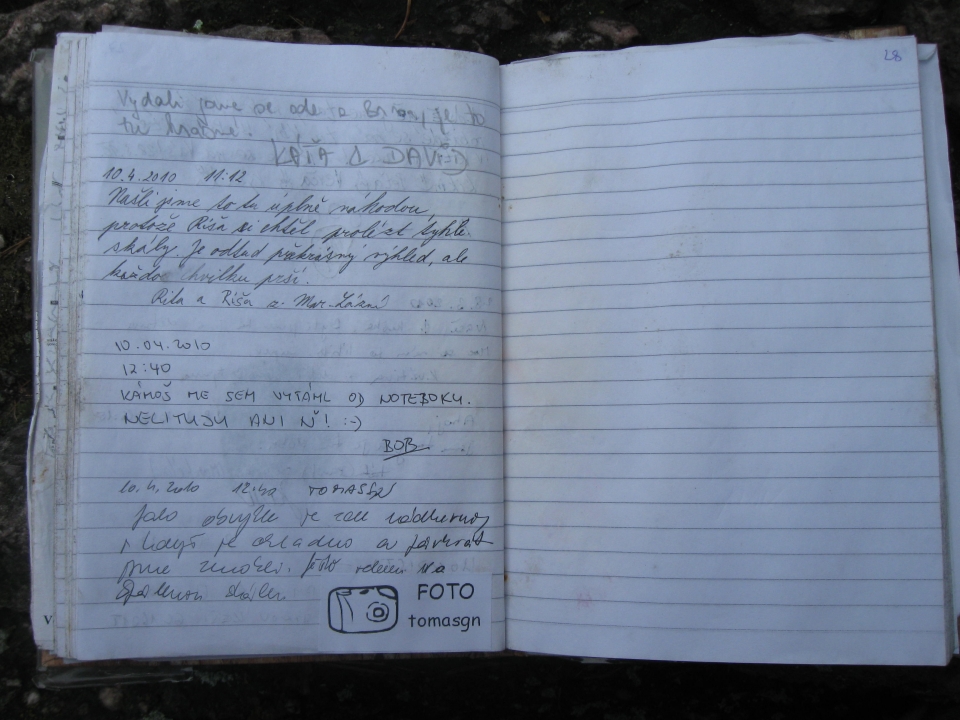 28
Vydali jsme se sem z Brna, je to
tu krásné.
KÁŤA & DAVID
10.4.2010 11:12
Našli jsme to tu úplně náhodou,
protože Ríša si chtěl prolézt tyhle
skály. Je odsud překrásný výhled, ale
každou chvilku prší.
Rita a Ríša z Mar. Lázní
10.04.2010
12:40
KÁMOŠ ME SEM VYTÁHL OD NOTEBOKU.
NELITUJU ANI Ň! :-)
BOB
10.4.2010 12:40 TOMASGN
Jako obvykle je zde nádherně
i když je chladno a
jsme foto
skálu
FOTO
tomasgn